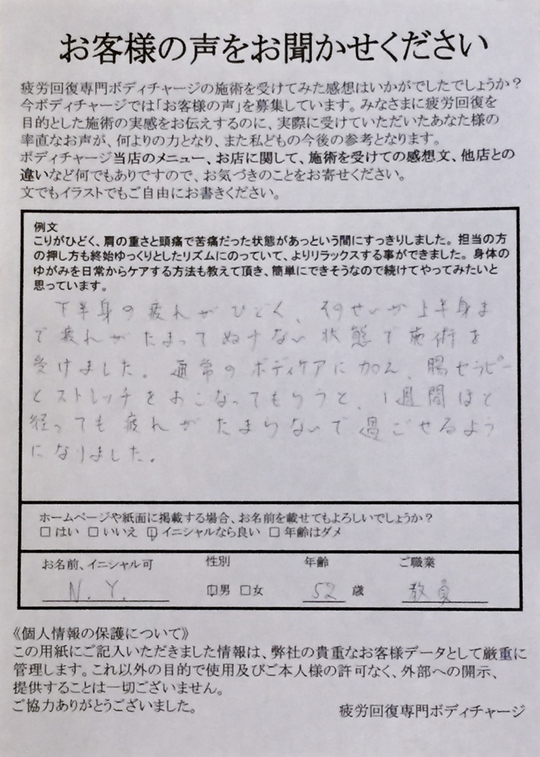 お客様の声をお聞かせください
疲労回復専門ボディチャージの施術を受けてみた感想はいかがでしたでしょうか？
今ボディチャージでは「お客様の声」を募集しています。みなさまに疲労回復を
目的とした施術の実感をお伝えするのに、実際に受けていただいたあなた様の
率直なお声が、何よりの力となり、また私どもの今後の参考となります。
ボディチャージ当店のメニュー、お店に関して、施術を受けての感想文、他店との
違いなど何でもありですので、お気づきのことをお寄せください。
文でもイラストでもご自由にお書きください。
例文
こりがひどく、肩の重さと頭痛で苦痛だった状態があっという間にすっきりしました。担当の方
の押し方も終始ゆっくりとしたリズムにのっていて、よりリラックスする事ができました。身体の
ゆがみを日常からケアする方法も教えて頂き、簡単にできそうなので続けてやってみたいと
思っています。
下半身の疲れがひどく、そのせいか上半身ま
で疲れがたまってぬけない状態で施術を
受けました。通常のボディケアに加え、腸セラピー
とストレッチをおこなってもらうと、1週間ほど
経っても疲れがたまらないで過ごせるよう
になりました。
ホームページや紙面に掲載する場合、お名前を載せてもよろしいでしょうか？
□ はい □ いいえ □ イニシャルなら良い □ 年齢はダメ
お名前、イニシャル可 性別 年齢 ご職業
N.Y. □男 □女 52 歳 教員
《個人情報の保護について》
この用紙にご記入いただきました情報は、弊社の貴重なお客様データとして厳重に
管理します。これ以外の目的で使用及びご本人様の許可なく、外部への開示、
提供することは一切ございません。
ご協力ありがとうございました。
疲労回復専門ボディチャージ